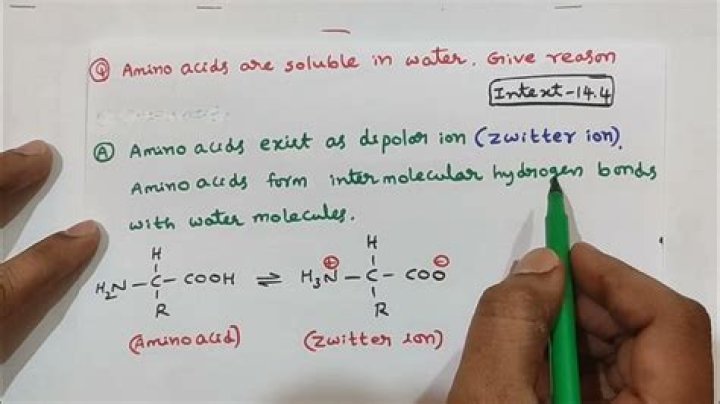 Q Amino acids are soluble in water. Give reason
Intext-14.4
A Amino acids exist as dipolar ion (zwitter ion).
Amino acids form intermolecular hydrogen bonds
with water molecules.
H H
H₂N – C – COOH ⇌ H₃N⊕ – C – COO⊖
R R
(Amino acid) (Zwitter ion)